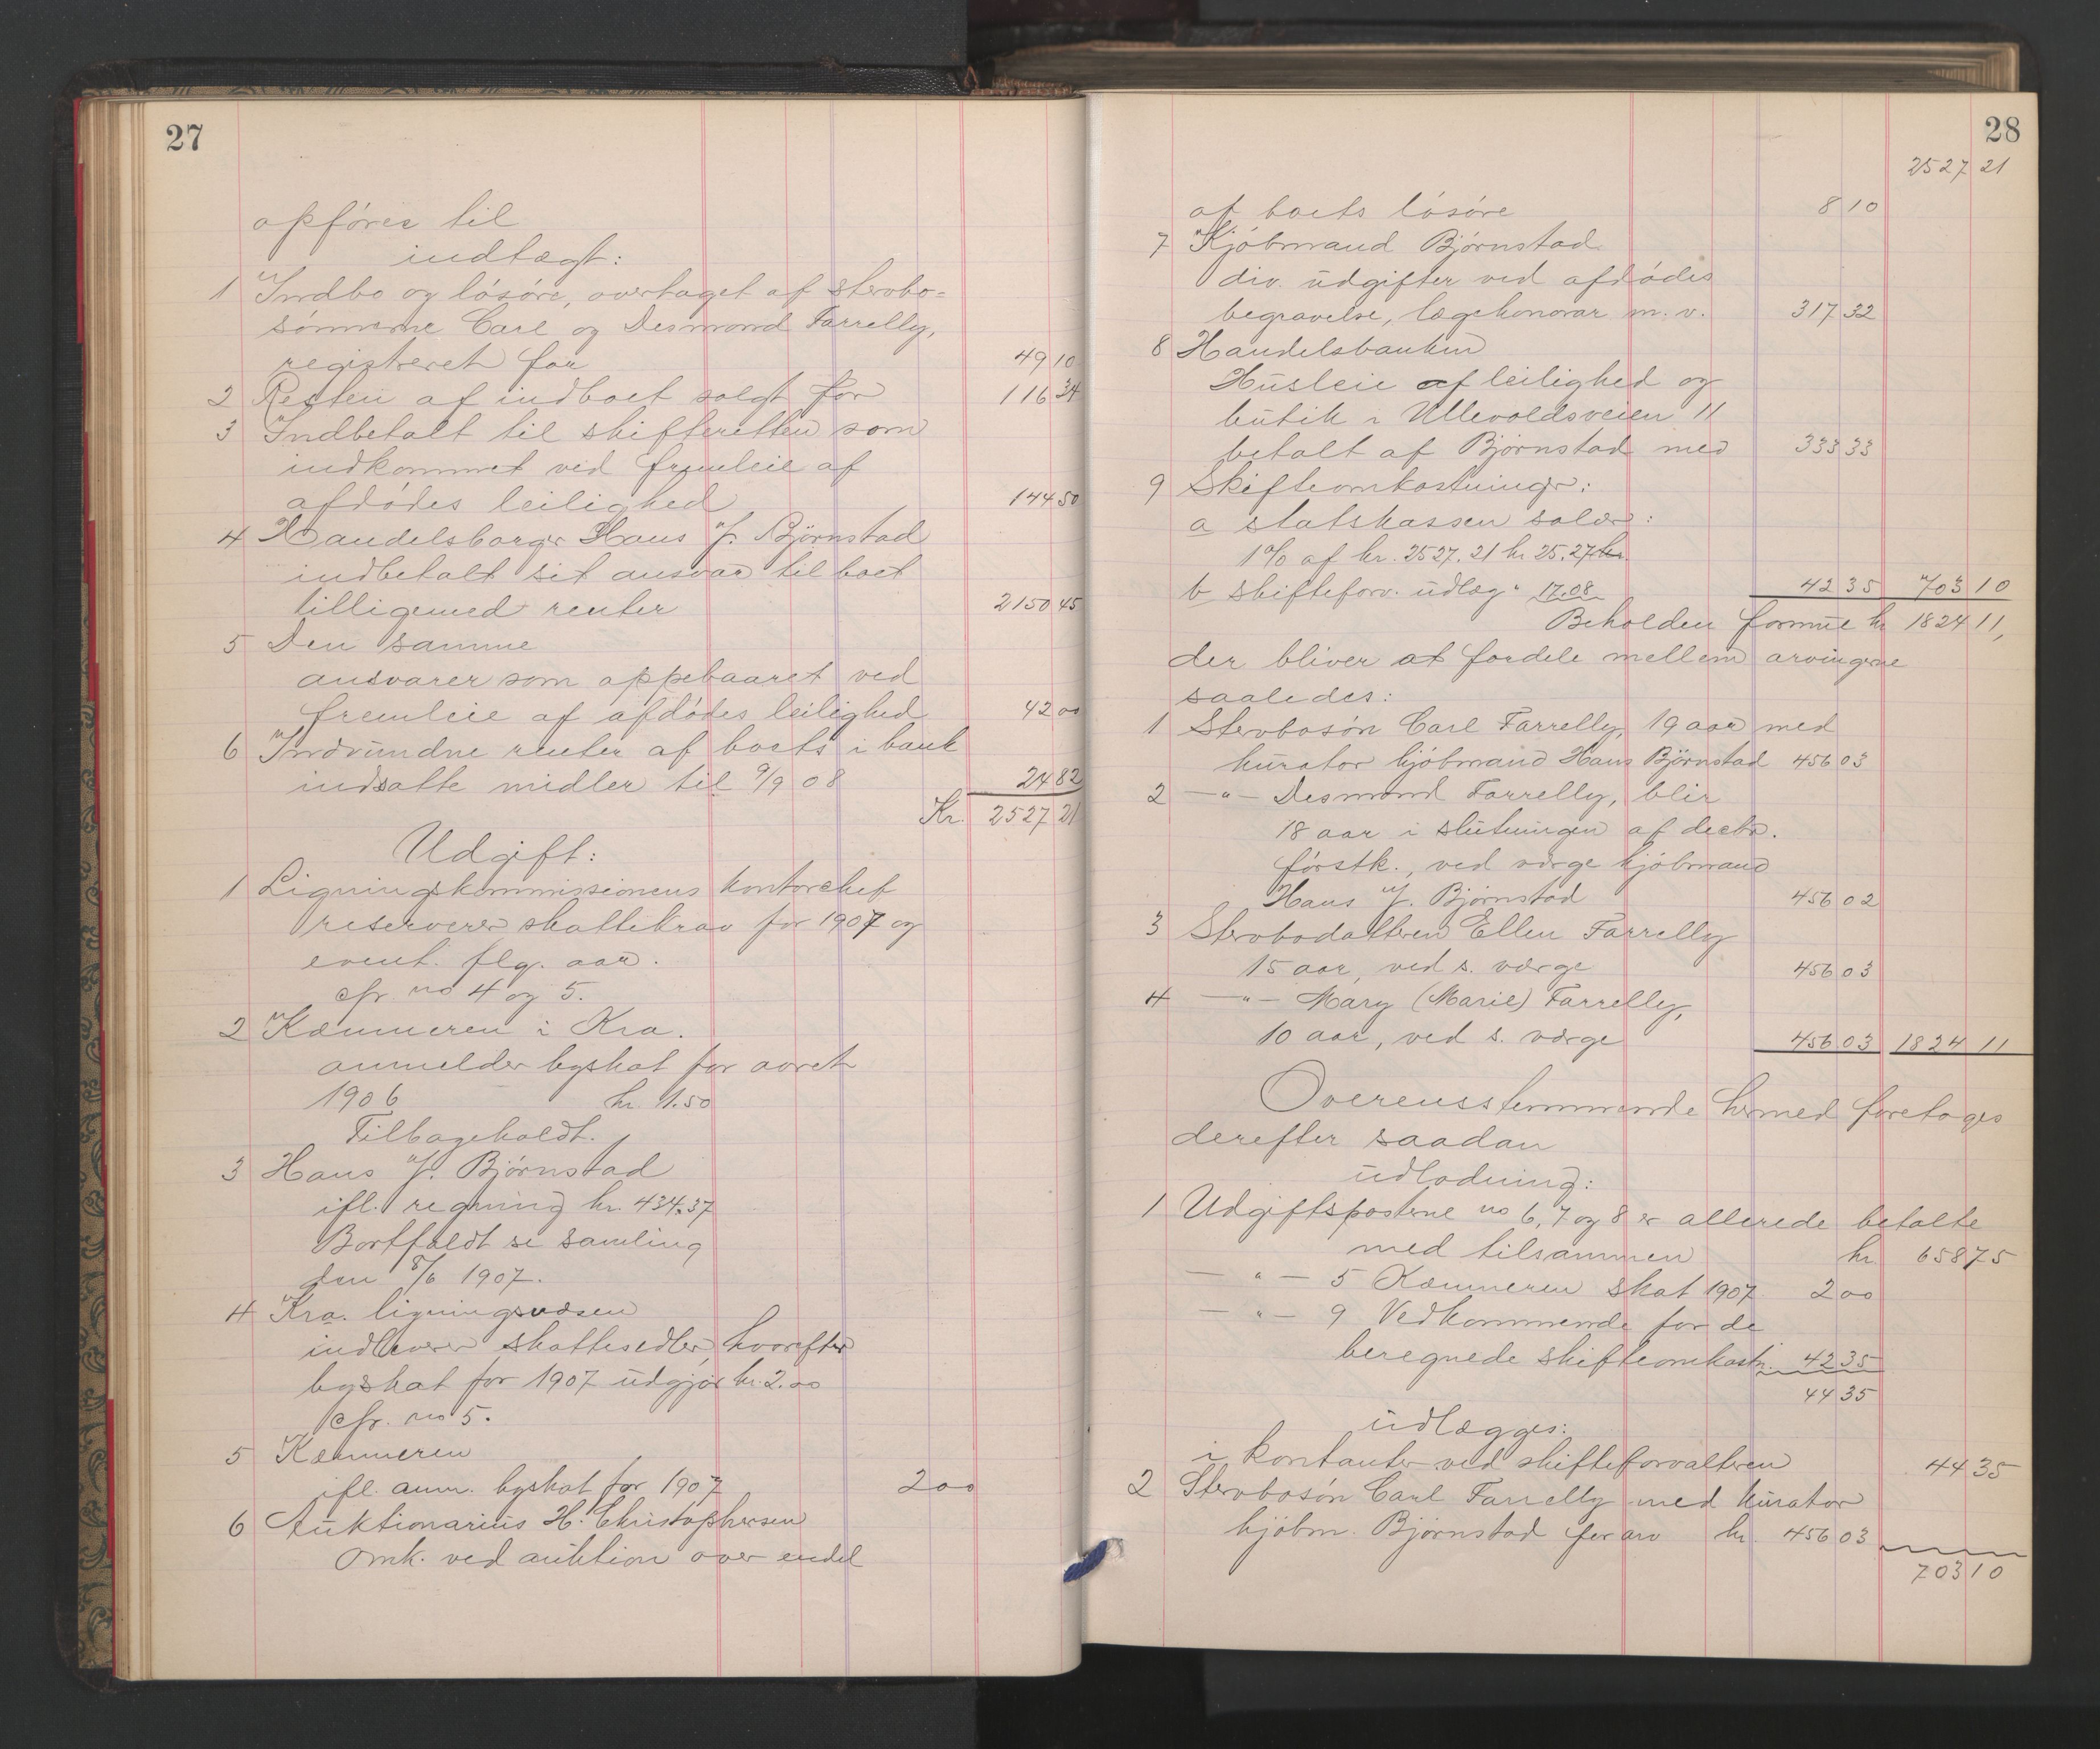 27
opføres til
indtægt:
1 Indbo og løsøre, overtaget af stervbo=
sønnerne Carl og Desmond Farrelly,
registreret for 49 10
2 Resten af indboet solgt for 116 34
3 Indbetalt til skifteretten som
indkommet ved fremleie af
afdødes leilighed 144 50
4 Handelsborger Hans J. Bjørnstad
indbetalt sit ansvar til boet
tilligemed renter 2150 45
5 Den samme
ansvarer som oppebaaret ved
fremleie af afdødes leilighed 42 00
6 Indvundne renter af boets i bank
indsatte midler til 9/9 08 24 82
Kr. 2527 21
Udgift:
1 Ligningskommissionens kontorchef
reserverer skattekrav for 1907 og
event. flg. aar.
cfr. no 4 og 5.
2 Kæmneren i Kra.
anmelder byskat for aaret
1906 kr. 11.50
Tilbageholdt.
3 Hans J. Bjørnstad
ifl. regning kr. 434.37
Bortfaldt se samling
den 8/6 1907.
4 Kra. ligningsvæsen
indleverer skattesedler, hvorefter
byskat for 1907 udgjør kr. 2.00
cfr. no 5.
5 Kæmneren
ifl. anm. byskat for 1907 2 00
6 Auktionarius H. Christophersen
omk. ved auktion over endel
28
2527 21
af boets løsøre 8 10
7 Kjøbmand Bjørnstad
div. udgifter ved afdødes
begravelse, lægehonorar m. v. 317 32
8 Handelsbanken
Husleie af leilighed og
butik i Ullevoldsveien 11
betalt af Bjørnstad med 333 33
9 Skifteomkostninger:
a statskassen salær:
1% af kr. 2527.21 kr 25.27 kr.
b skifteforv. udlæg " 17.08 42 35 703 10
Beholden formue kr 1824 11,
der bliver at fordele mellem arvingerne
saaledes:
1 Stervbosøn Carl Farrelly, 19 aar med
kurator kjøbmand Hans Bjørnstad 456 03
2 —"— Desmond Farrelly, blir
18 aar i slutningen af decbr.
førstk., ved værge kjøbmand
Hans J. Bjørnstad 456 02
3 Stervbodatteren Ellen Farrelly
15 aar, ved s. værge 456 03
4 —"— Mary (Marie) Farrelly,
10 aar, ved s. værge 456 03 1824 11
Overensstemmende hermed foretages
derefter saadan
udlodning:
1 Udgiftsposterne no 6, 7 og 8 er allerede betalte
med tilsammen kr 658 75
— " — 5 Kæmneren skat 1907 2 00
— " — 9 Vedkommende for de
beregnede skifteomkostn. 42 35
44 35
udlægges:
i kontanter ved skifteforvalteren 44 35
2 Stervbosøn Carl Farrelly med kurator
kjøbm. Bjørnstad for arv kr. 456 03
703 10